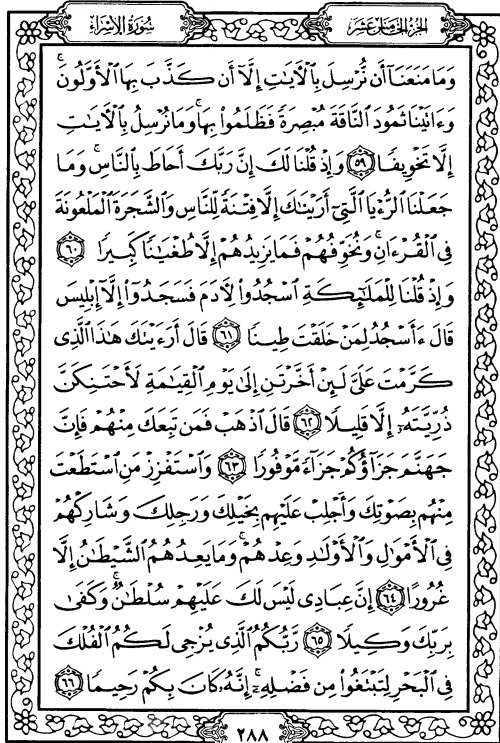 سُورَةُ الإِسْرَاءِ
الجُزْءُ الخَامِسَ عَشَرَ
وَمَا مَنَعَنَآ أَن نُّرْسِلَ بِٱلْأَيَٰتِ إِلَّآ أَن كَذَّبَ بِهَا ٱلْأَوَّلُونَۚ
وَءَاتَيْنَا ثَمُودَ ٱلنَّاقَةَ مُبْصِرَةً فَظَلَمُوا۟ بِهَاۚ وَمَا نُرْسِلُ بِٱلْأَيَٰتِ
إِلَّا تَخْوِيفًا ٥٩ وَإِذْ قُلْنَا لَكَ إِنَّ رَبَّكَ أَحَاطَ بِٱلنَّاسِۚ وَمَا
جَعَلْنَا ٱلرُّءْيَا ٱلَّتِىٓ أَرَيْنَٰكَ إِلَّا فِتْنَةً لِّلنَّاسِ وَٱلشَّجَرَةَ ٱلْمَلْعُونَةَ
فِى ٱلْقُرْءَانِۚ وَنُخَوِّفُهُمْ فَمَا يَزِيدُهُمْ إِلَّا طُغْيَٰنًا كَبِيرًا ٦٠
وَإِذْ قُلْنَا لِلْمَلَٰٓئِكَةِ ٱسْجُدُوا۟ لِأَدَمَ فَسَجَدُوٓا۟ إِلَّآ إِبْلِيسَ
قَالَ ءَأَسْجُدُ لِمَنْ خَلَقْتَ طِينًا ٦١ قَالَ أَرَءَيْتَكَ هَٰذَا ٱلَّذِى
كَرَّمْتَ عَلَىَّ لَئِنْ أَخَّرْتَنِ إِلَىٰ يَوْمِ ٱلْقِيَٰمَةِ لَأَحْتَنِكَنَّ
ذُرِّيَّتَهُۥٓ إِلَّا قَلِيلًا ٦٢ قَالَ ٱذْهَبْ فَمَن تَبِعَكَ مِنْهُمْ فَإِنَّ
جَهَنَّمَ جَزَآؤُكُمْ جَزَآءً مَّوْفُورًا ٦٣ وَٱسْتَفْزِزْ مَنِ ٱسْتَطَعْتَ
مِنْهُم بِصَوْتِكَ وَأَجْلِبْ عَلَيْهِم بِخَيْلِكَ وَرَجِلِكَ وَشَارِكْهُمْ
فِى ٱلْأَمْوَٰلِ وَٱلْأَوْلَٰدِ وَعِدْهُمْۚ وَمَا يَعِدُهُمُ ٱلشَّيْطَٰنُ إِلَّا
غُرُورًا ٦٤ إِنَّ عِبَادِى لَيْسَ لَكَ عَلَيْهِمْ سُلْطَٰنٌۚ وَكَفَىٰ
بِرَبِّكَ وَكِيلًا ٦٥ رَّبُّكُمُ ٱلَّذِى يُزْجِى لَكُمُ ٱلْفُلْكَ
فِى ٱلْبَحْرِ لِتَبْتَغُوا۟ مِن فَضْلِهِۦٓۚ إِنَّهُۥ كَانَ بِكُمْ رَحِيمًا ٦٦
٢٨٨